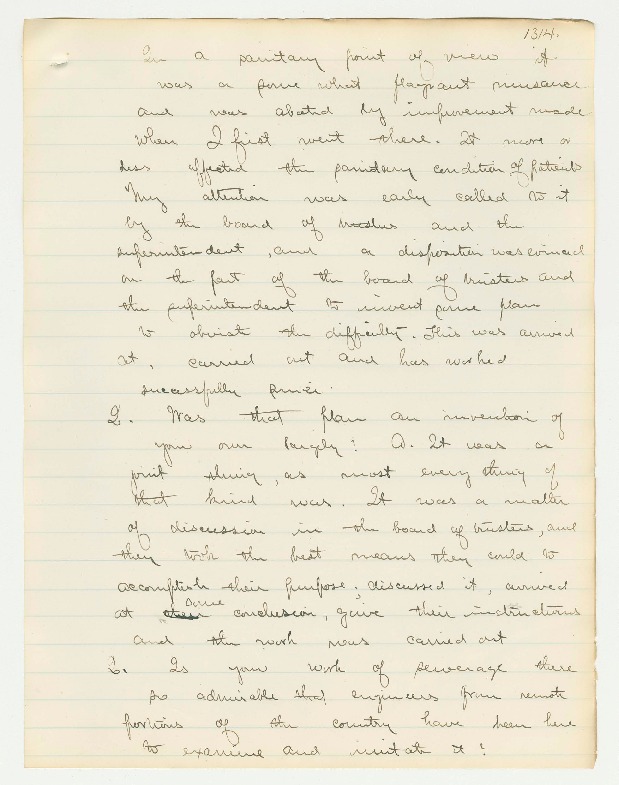 1314.
In a sanitary point of view it
was a some what flagrant nuisance
and was abated by improvement made
when I first went there. It more or
less affected the sanitary condition of patients
My attention was early called to it
by the board of trustees and the
superintendent, and a disposition was evinced
on the part of the board of trustees and
the superintendent to invent some plan
to obviate the difficulty. This was arrived
at, carried out and has worked
sucessfully since.
Q. Was that plan an invention of
your own largely? A. It was a
joint thing, as most every thing of
that kind was. It was a matter
of discussion in the board of trustees, and
they took the best means they could to
accomplish their purpose; discussed it, arrived
at some conclusion, gave their instructions
and the work was carried out
Q. Is your work of sewerage there
so admirable that engineers from remote
portions of the country have been here
to examine and imitate it?